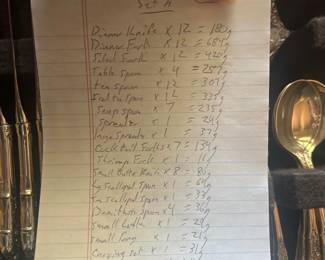 Set A
Dinner Knife x 12 = 180g
Dinner Fork x 12 = 684g
Salad Fork x 12 = 420g
Table spoon x 4 = 257g
tea spoon x 12 = 307g
x 12 = 335g
Soup spoon x 7 = 235g
Spreader x 1 = 24g
large spreader x 1 = 37g
Cocktail Forks x 7 = 139g
Shrimp Fork x 1 = 11g
Small Butter Knife x 8 = 80g
Lg scallopd spoon x 1 = 64g
sm scallopd spoon x 1 = 33g
Demitash spoon x 4 = 36g
small ladle x 1 = 29g
small tong x 1 = 21g
Carving set x 1 = 31g